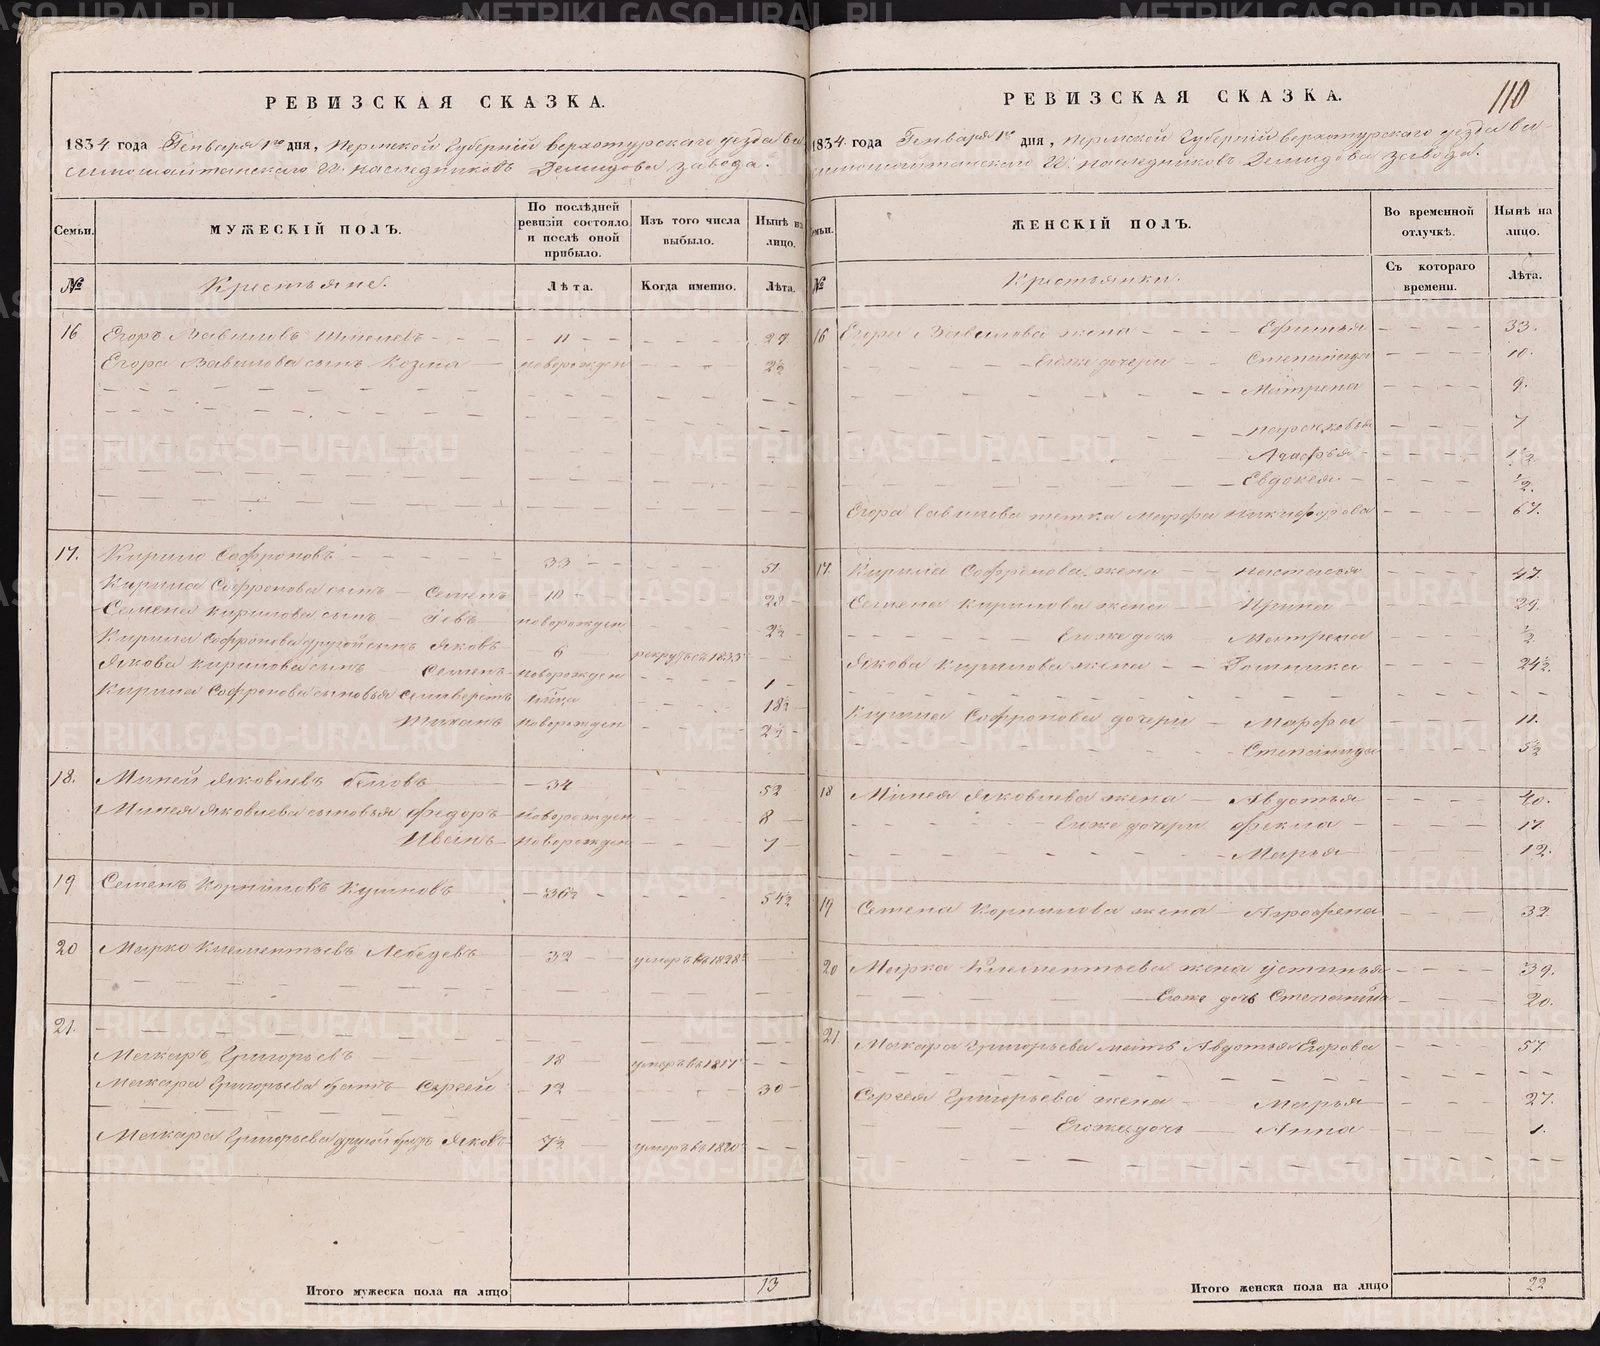 РЕВИЗСКАЯ СКАЗКА.
1834 года Генваря 1го дня, Пермской Губерніи верхотурскаго уезда ви
симошайтанскаго наследниковъ Демидова завода.
Семьи. МУЖЕСКІЙ ПОЛЪ. По послѣдней ревизіи состояло и послѣ оной прибыло. Изъ того числа выбыло. Нынѣ на лицо.
№ Крестьяне. Лѣта. Когда именно. Лѣта.
16 Егоръ Вавиловъ 11 29
Егора Вавилова сынъ Козма новорожден 2½
17. Кирило Софроновъ 33 51
Кирила Софронова сынъ Семенъ 10 28
Семена Кирилова сынъ Іевъ новорожден 2½
Кирила Софронова другой сынъ Яковъ 6 рекрутъ 1833
Якова Кирилова сынъ Семенъ новорожден 1
Кирила Софронова сыновья Селиверстъ 18½
Тиханъ новорожден 2½
18. Миней Яковлевъ Беловъ 34 52
Минея Яковлева сыновья Федоръ новорожден 8
Иванъ новорожден 7
19 Семенъ Корниловъ 36½ 54½
20 Марко Клементьевъ Лебедевъ 32 умеръ въ 1828
21. Макаръ Григорьевъ 18 умеръ въ 1817
Макара Григорьева братъ Сергей 12 30
Макара Григорьева другой братъ Яковъ 7½ умеръ въ 1820
Итого мужеска пола на лицо 13
110
РЕВИЗСКАЯ СКАЗКА.
1834 года Генваря 1го дня, Пермской Губерніи верхотурскаго уезда ви
симошайтанскаго наследниковъ Демидова завода.
ЖЕНСКІЙ ПОЛЪ. Во временной отлучкѣ. Нынѣ на лицо.
№ Крестьянки. Съ котораго времени. Лѣта.
16 Егора Вавилова жена Ефимья 33.
Егоже дочери Степанида 10.
Матрена 9.
Парасковья 7
Агафья 1½
Евдокея ½.
Егора Вавилова тетка Марфа Никифорова 67.
17. Кирила Софронова жена Настасея 47.
Семена Кирилова жена Ирина 29.
Егоже дочь Матрена ½
Якова Кирилова жена Домника 24½.
Кирила Софронова дочери Марфа 11.
Степанида 5½
18 Минея Яковлева жена Авдотья 40.
Егоже дочери Фекла 17.
Марья 12.
19 Семена Корнилова жена Аграфена 32
20 Марка Клементьева жена Устинья 39.
Егоже дочь Степанида 20.
21. Макара Григорьева мать Авдотья Егорова 57.
Сергея Григорьева жена Марья 27.
Егоже дочь Анна 1.
Итого женска пола на лицо 22
METRIKI.GASO-URAL.RU